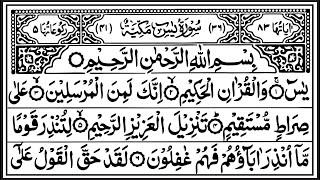 اٰیَاتُهَا ٨٣ (٣٦) سُوْرَةُ یٰسٓ مَکِّیَّةٌ (٤١) رُكُوْعَاتُهَا ٥
بِسْمِ اللّٰهِ الرَّحْمٰنِ الرَّحِیْمِ
یٰسٓ وَالْقُرْاٰنِ الْحَکِیْمِ اِنَّكَ لَمِنَ الْمُرْسَلِیْنَ عَلٰی
صِرَاطٍ مُّسْتَقِیْمٍ تَنْزِیْلَ الْعَزِیْزِ الرَّحِیْمِ لِتُنْذِرَ قَوْمًا
مَّاۤ اُنْذِرَ اٰبَآؤُهُمْ فَهُمْ غٰفِلُوْنَ لَقَدْ حَقَّ الْقَوْلُ عَلٰۤی